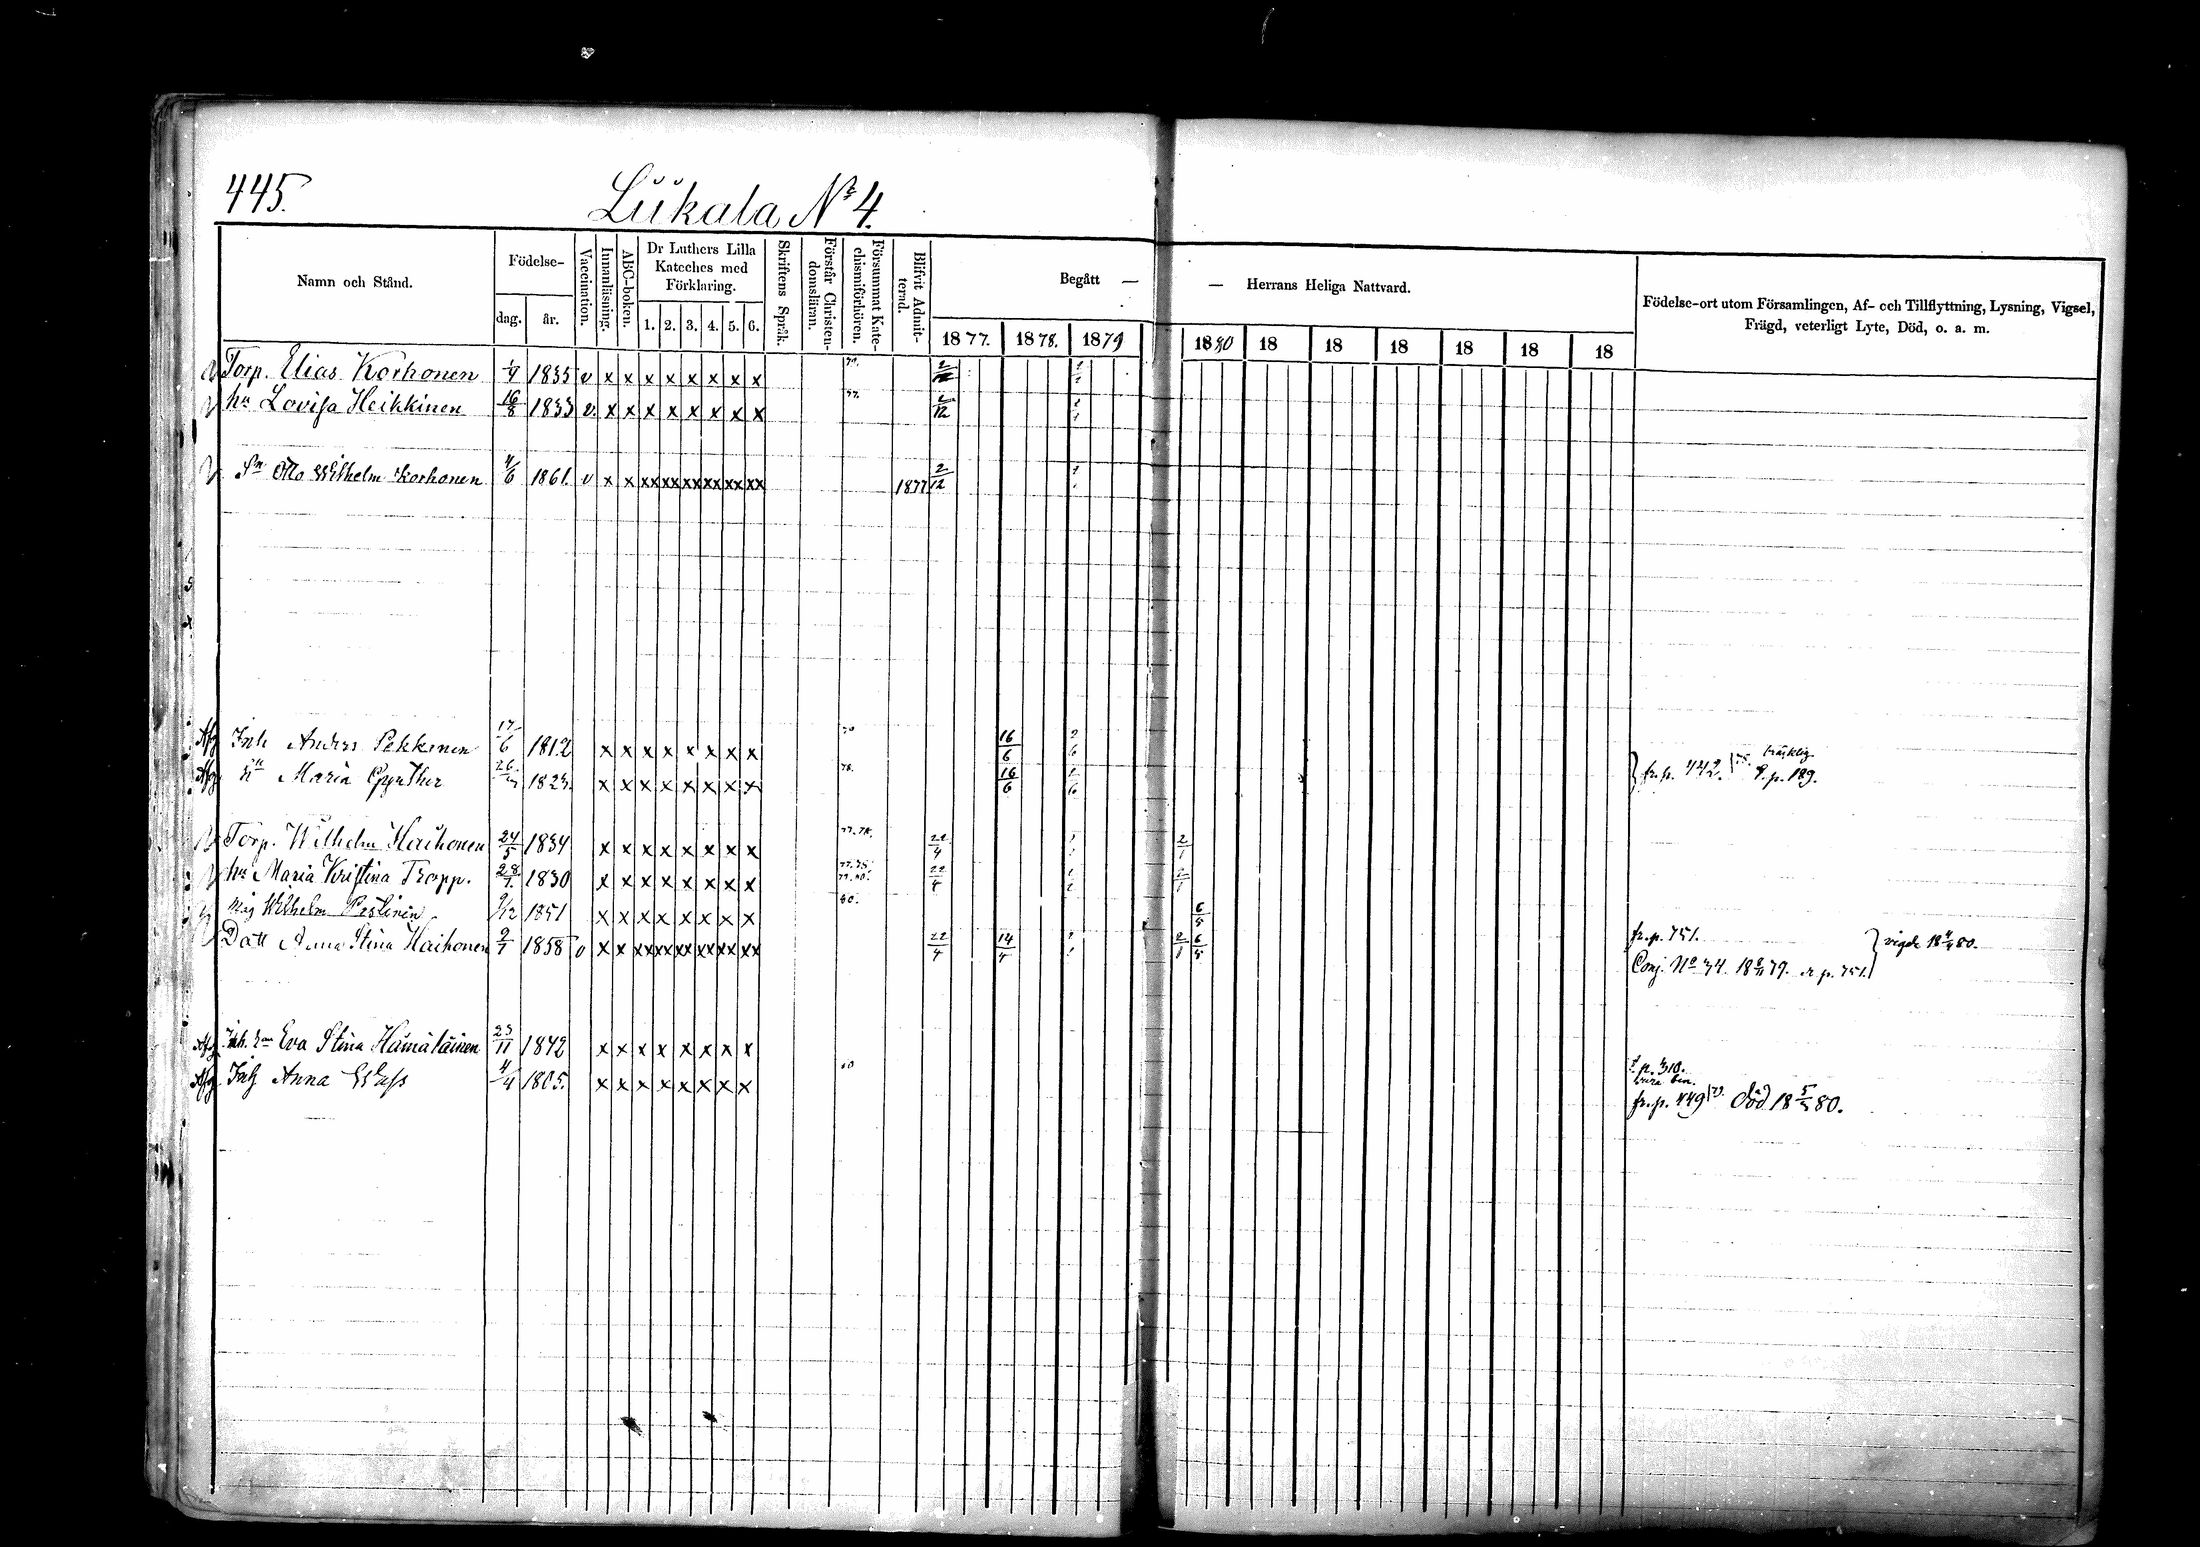 445.
Liikala Nr 4.
Namn och Stånd.
Födelse-
dag.
år.
Vaccination.
Innanläsning.
ABC-boken.
Dr Luthers Lilla
Kateches med
Förklaring.
1. 2. 3. 4. 5. 6.
Skriftens Språk.
Förstår Christen-
domsläran.
Försummat Kate-
chismiförhören.
Blifvit Admit-
terad.
Begått —
— Herrans Heliga Nattvard.
1877. 1878. 1879 1880 18 18 18 18 18 18
Födelse-ort utom Församlingen, Af- och Tillflyttning, Lysning, Vigsel,
Frägd, veterligt Lyte, Död, o. a. m.
Torp. Elias Korhonen 1835 v x x x x x x x x
hu Lovisa Heikkinen 16/8 1833 v. x x x x x x x x 77. 2/12
Sn Otto Wilhelm Korhonen 4/6 1861. v x x xx xx xx xx xx xx 1877 2/12
Afg Inh Anders Pekkinen 17/6 1812 x x x x x x x x 16/6 2/6
Afg Maria 1823. x x x x x x x x 78. 16/6 fr. p. 442. p. 189.
Torp. Wilhelm Haikonen 24/5 1834 x x x x x x x x 77. 78. 22/4 2/1
hu Maria Kristina Tropp. 28/7. 1830 x x x x x x x x 22/4 2/1
Måg Wilhelm 9/12 1851 x x x x x x x x 80. 6/5
Dott Anna Stina Haikonen 9/7 1858 v x x xx xx xx xx xx xx 22/4 14/4 2/1 6/5 fr. p. 751. vigde 18 4/4 80.
Conj. No 34. 18 79. p. 751.
Afg Inh. Eva Stina Hämäläinen 23/11 1842 x x x x x x x x
Afg Anna 4/4 1805. x x x x x x x x p. 310.
fr. p. 449 död 18 5/5 80.